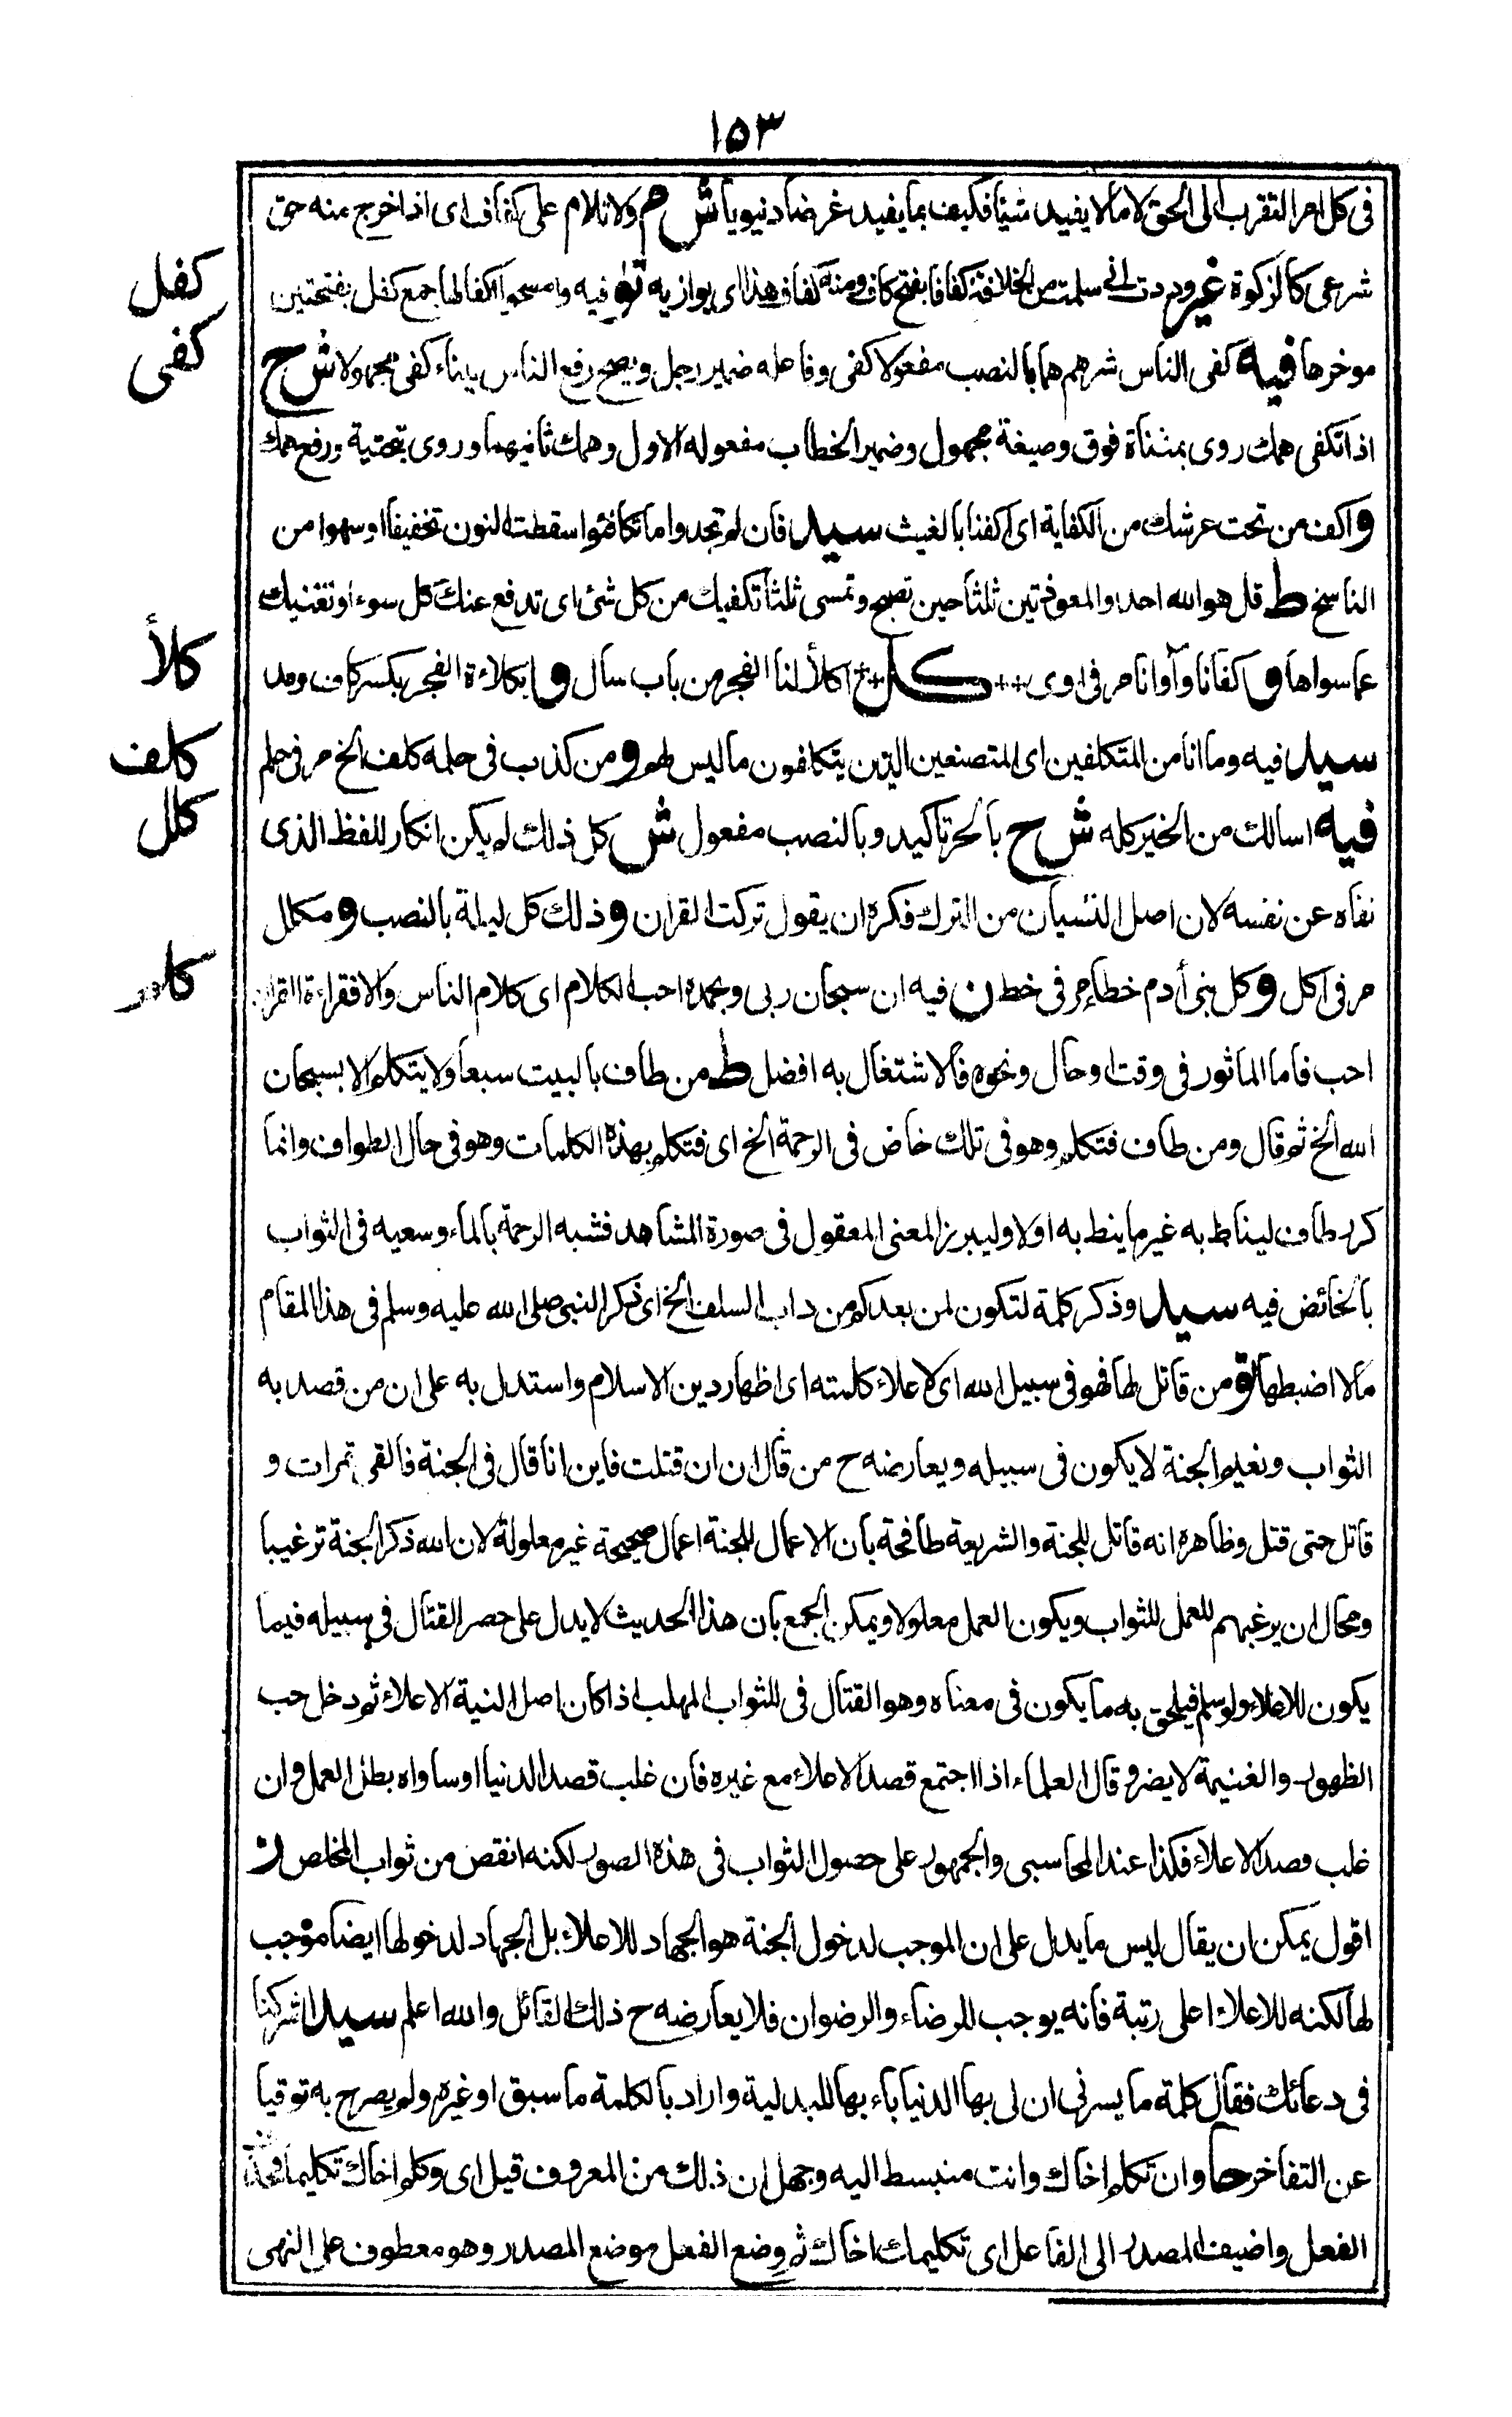 ١٥٣
فى كل امر التقرب الى الحق لا ما لا يفيد شيئا فكيف بما يفيد غرضا دنيويا ش م ولا تلام على كفاف اى اذا خرج منه حق
كفل
شرعى كالزكوة غير وددت انى سلمت من الخلافة كفافا بفتح كاف ومنه كفاف هذا اى يوازيه تو فيه وامسحوا اكفالها جمع كفل بفتحتين
كفى
موخرها فيه كفى الناس شرهم هما بالنصب مفعولا كفى وفاعله ضمير رجل ويصح رفع الناس ببناء كفى مجهولا ش ح
اذا تكفى همك روى بمثناة فوق وصيغة مجهول وضمير الخطاب مفعوله الاول وهمك ثانيهما وروى بتحتية ورفع همك
و اكف من تحت عرشك من الكفاية اى اكفنا بالغيث سيد فان لم تجدوا ما تكافئوا سقطت النون تخفيفا او سهوا من
الناسخ ط قل هو الله احد والمعوذتين ثلثا حين تصبح وتمسى ثلثا تكفيك من كل شئ اى تدفع عنك كل سوء او تغنيك
كلأ
عما سواها و كفانا وآوانا مر فى اوى ++ كل ++ اكلأ لنا الفجر من باب سأل و ابكلاءة الفجر بكسر كاف ومد
كلف
سيد فيه وما انا من المتكلفين اى المتصنعين الذين يتكلفون ما ليس لهم و من كذب فى حلمه كلف الخ مر فى حلم
كلل
فيه اسالك من الخير كله ش ح بالجر تاكيد وبالنصب مفعول ش كل ذلك لم يكن انكار للفظ الذى
نفاه عن نفسه لان اصل النسيان من الترك فكره ان يقول تركت القران و ذلك كل ليلة بالنصب و مكلل
مر فى اكل و كل بنى أدم خطاء مر فى خط ن فيه ان سبحان ربى وبحمده احب الكلام اى كلام الناس والا فقراءة القران
احب فاما الماثور فى وقت او حال ونحوه فالاشتغال به افضل ط من طاف بالبيت سبعا ولا يتكلم الا بسبحان
الله الخ ثم قال ومن طاف فتكلم وهو فى تلك خاض فى الرحمة الخ اى فتكلم بهذه الكلمات وهو فى حال الطواف وانما
كرر طاف ليناط به غير ما ينط به اولا وليبرز المعنى المعقول فى صورة المشاهد فشبه الرحمة بالماء وسعيه فى الثواب
بالخائض فيه سيد وذكر كلمة لتكون لمن بعدكم من داب السلف الخ اى ذكر النبى صلى الله عليه وسلم فى هذا المقام
مالا اضبطها تو من قاتل لها فهو فى سبيل الله اى لاعلاء كلمته اى اظهار دين الاسلام واستدل به على ان من قصد به
الثواب ونعيم الجنة لا يكون فى سبيله ويعارضه ح من قال ان ان قتلت فاين انا قال فى الجنة فالقى تمرات و
قاتل حتى قتل وظاهره انه قاتل للجنة والشريعة طافحة بان الاعمال للجنة اعمال صحيحة غير معلولة لان الله ذكر الجنة ترغيبا
ومحال ان يرغبهم للعمل للثواب ويكون العمل معلولا ويمكن الجمع بان هذا الحديث لا يدل على حصر القتال فى سبيله فيما
يكون للاعلاء ولو سلم فيلحق به ما يكون فى معناه وهو القتال فى للثواب المهلب اذا كان اصل النية الاعلاء ثم دخل حب
الظهور والغنيمة لا يضر و قال العلماء اذا اجتمع قصد الاعلاء مع غيره فان غلب قصد الدنيا او ساواه بطل العمل وان
غلب قصد الاعلاء فكذا عند المحاسبى والجمهور على حصول الثواب فى هذه الصور لكنه انقص من ثواب المخلص
اقول يمكن ان يقال ليس ما يدل على ان الموجب لدخول الجنة هو الجهاد للاعلاء بل الجهاد لدخولها ايضا موجب
لها لكنه للاعلاء اعلى رتبة فانه يوجب للرضاء والرضوان فلا يعارضه ح ذلك القائل والله اعلم سيد اشركنا
فى دعائك فقال كلمة ما يسرنى ان لى بها الدنيا باء بها للبدلية واراد بالكلمة ما سبق او غيره ولم يصرح به توقيا
عن التفاخر حا وان تكلم اخاك وانت منبسط اليه وجهل ان ذلك من المعروف قيل اى وكلم اخاك تكليما فحذف
الفعل واضيف المصدر الى الفاعل اى تكليمك اخاك ثم وضع الفعل موضع المصدر وهو معطوف على النهى